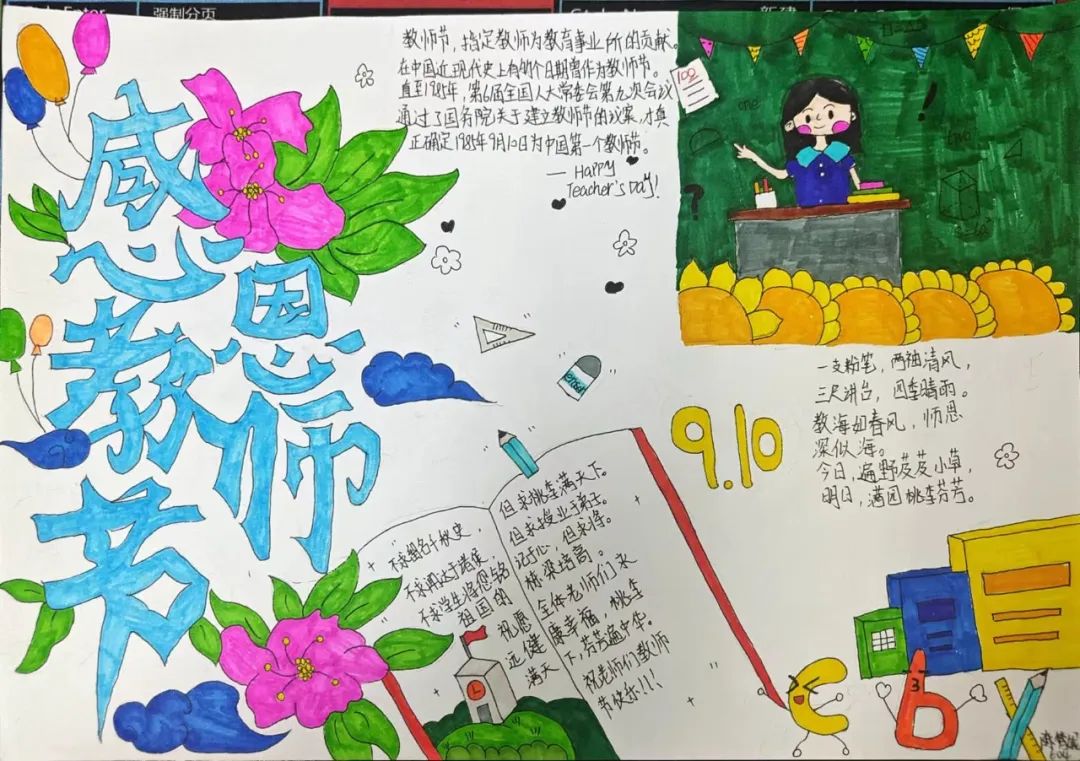 强制分页
感恩教师节
教师节，指定教师为教育事业所的贡献。
在中国近现代史上有的个日期曾作为教师节。
直至1985年，第6届全国人大常委会第九次会议
通过了国务院关于建立教师节的议案，才真
正确定1985年9月10日为中国第一个教师节。
— Happy
Teacher's Day!
100
one
two
9.10
一支粉笔，两袖清风，
三尺讲台，四季晴雨。
教海如春风，师恩
深似海。
今日，遍野芨芨小草，
明日，满园桃李芬芳。
不求留名千秋史，
不求闻达于诸侯，
不求学生将您铭
祖国的
祝愿
远健
满天
但求桃李满天下。
但求授业于弟子。
记于心，但求将。
栋梁培高。
全体老师们永
康幸福，桃李
下，芬芳遍中华。
祝老师们教师
节快乐!!!
b
3